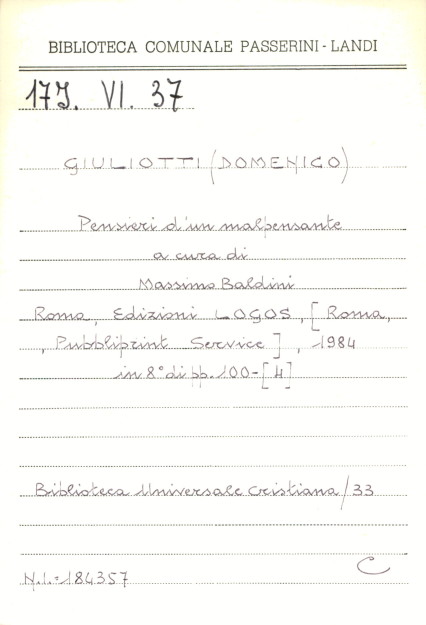 BIBLIOTECA COMUNALE PASSERINI - LANDI
17J. VI. 37
GIULIOTTI (DOMENICO)
Pensieri d'un malpensante
a cura di
Massimo Baldini
Roma, Edizioni LOGOS, [Roma,
, Pubbliprint Service], 1984
in 8° di pp. 100-[4]
Biblioteca Universale Cristiana/33
C
N.I.=184357